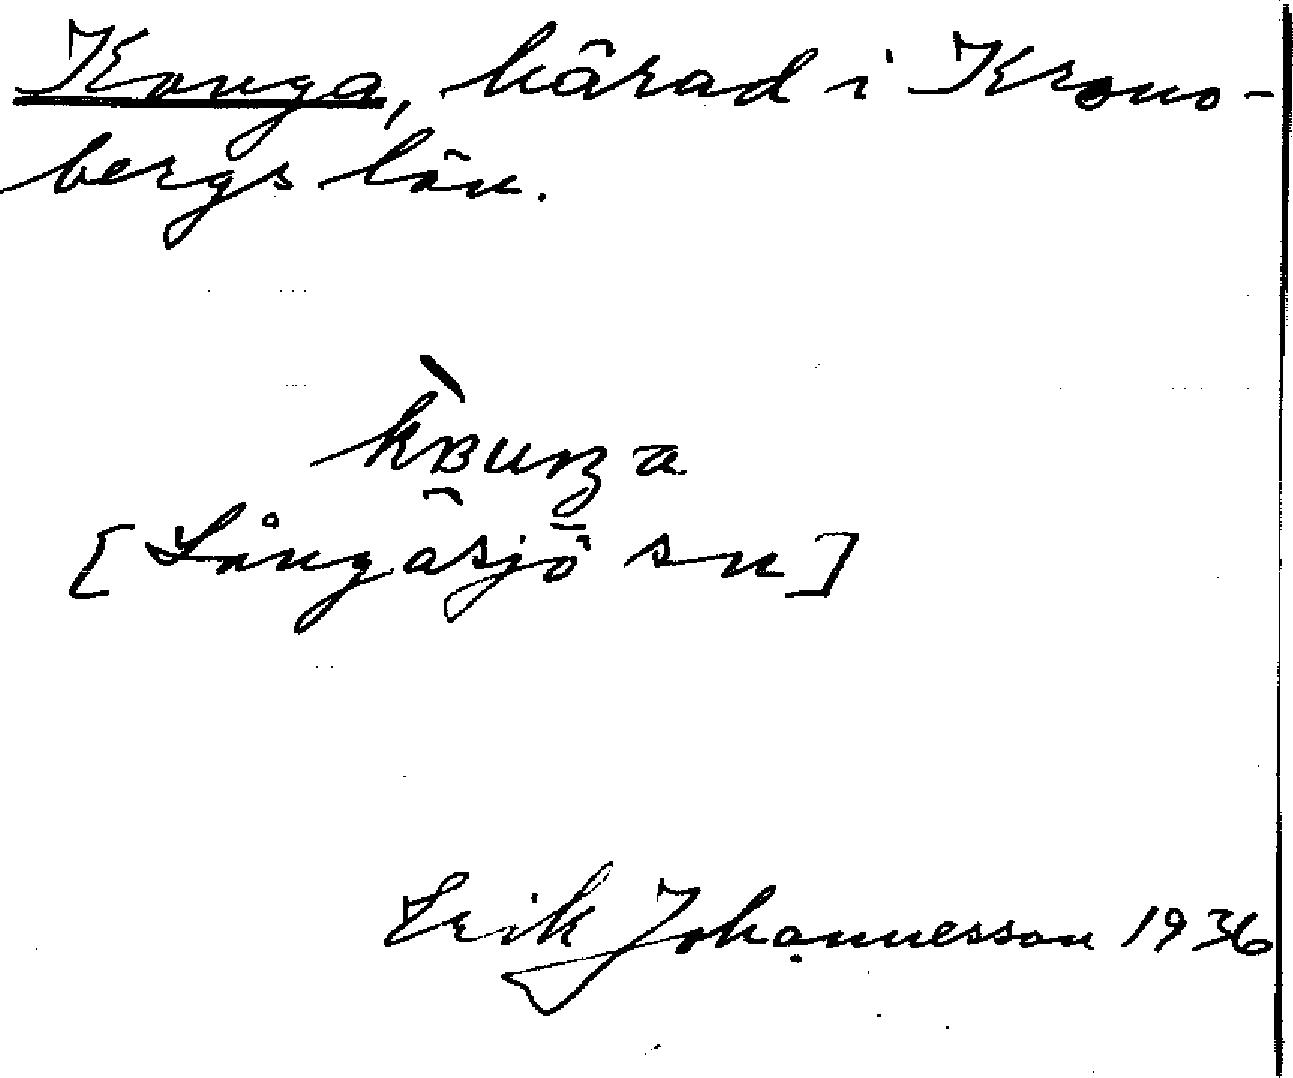 Konga, härad i Krono-
bergs län.
[Långasjö sn]
Erik Johannesson 1936